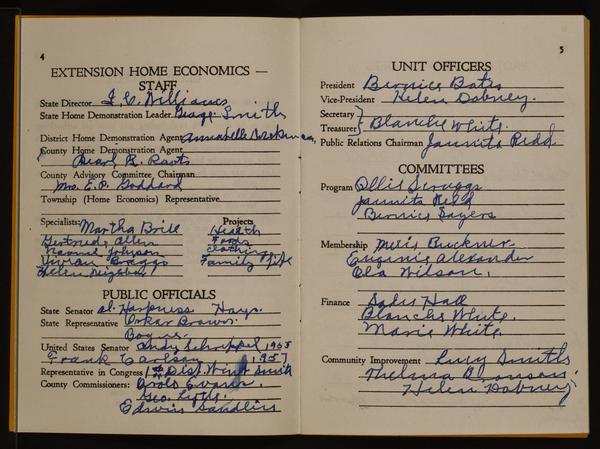 4
EXTENSION HOME ECONOMICS —
STAFF
State Director L. C. Williams
State Home Demonstration Leader Georg. Smith
District Home Demonstration Agent Annabelle
County Home Demonstration Agent
Pearl R. Roots
County Advisory Committee Chairman
Mrs. E. P. Goddard
Township (Home Economics) Representative
Specialists: Martha Brill
Projects
Health
Gertrude Allen
Foods
Naomi Johnson
Clothing
Vivian Briggs
Family Life
Helen Neighbor
PUBLIC OFFICIALS
State Senator Al. Harkness Hays.
State Representative Oskar Brown.
United States Senator Andy Schoeppel 1955
Frank Carlson 1957
Representative in Congress 1st Dist. Wint Smith
County Commissioners: Evans.
Geo. Lyttle.
Edwin Sandlin
5
UNIT OFFICERS
President Bernice Bates
Vice-President Helen Dabney.
Secretary
Treasurer } Blanche White.
Public Relations Chairman Jaunita Redd
COMMITTEES
Program Ollie Scruggs
Jaunita Redd
Bernice Sayers
Membership Buckner
Eugenie Alexander
Ola Wilson.
Finance Sadie Hall
Blanche White.
Marie White.
Community Improvement Lucy Smith
Thelma Bronson.
Helen Dabney